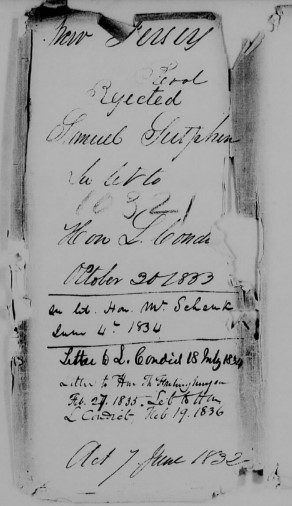 New Jersey
Rejected
Samuel Sutphen
In let to
10321
Hon L. Condi
October 20 1833
in ld. Hon. Mr Schenk
June 4th 1834
Letter to L. Condict 18 July 1834
Letter to Hon Th Frelinghuysen
Feb. 27. 1835. Let to Hon
L Condict Feb 19. 1836
Act 7 June 1832